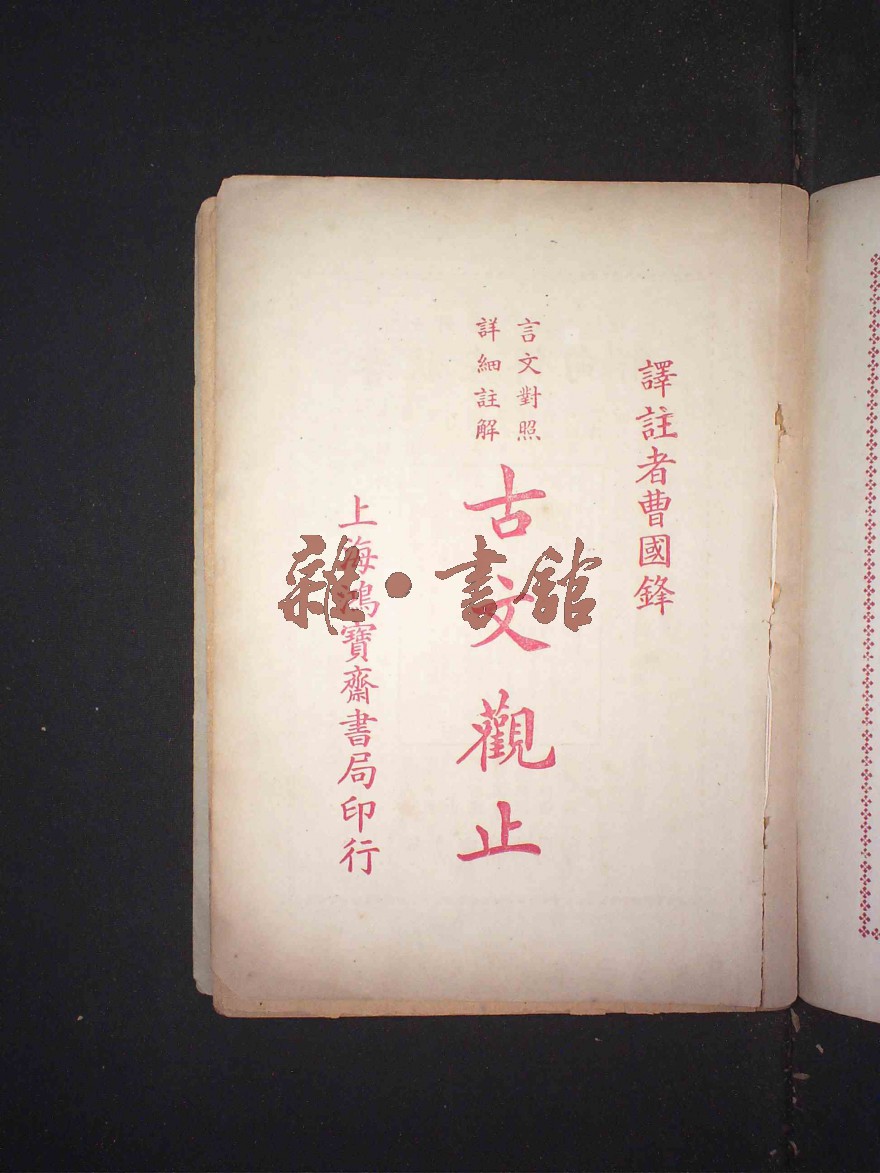 譯註者曹國鋒
言文對照
詳細註解
古文觀止
上海鴻寶齋書局印行
雜·書館